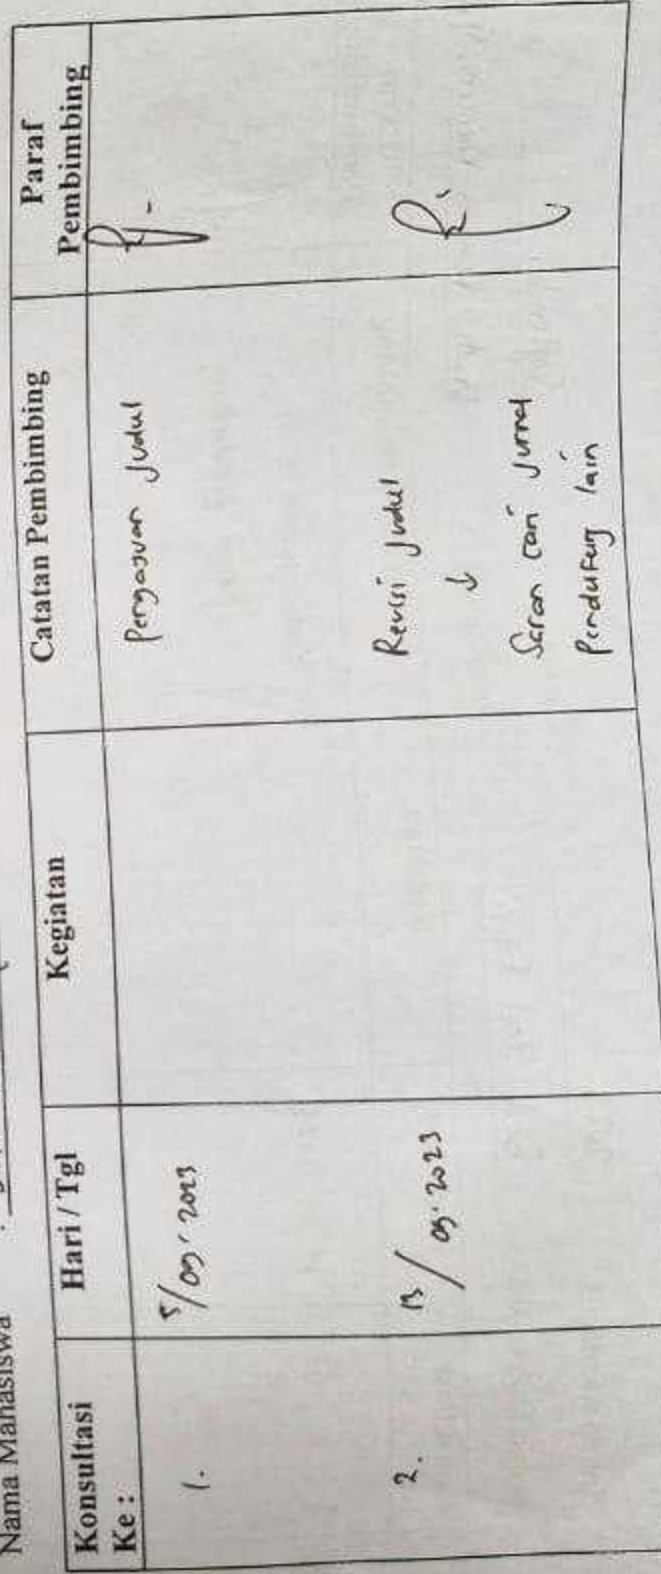 Nama Mahasiswa :
Konsultasi Ke : Hari / Tgl Kegiatan Catatan Pembimbing Paraf Pembimbing
1. 5/09 2023 Pengajuan Judul
2. 13/09 2023 Revisi Judul
↓
Saran cari Jurnal
Pendukung lain